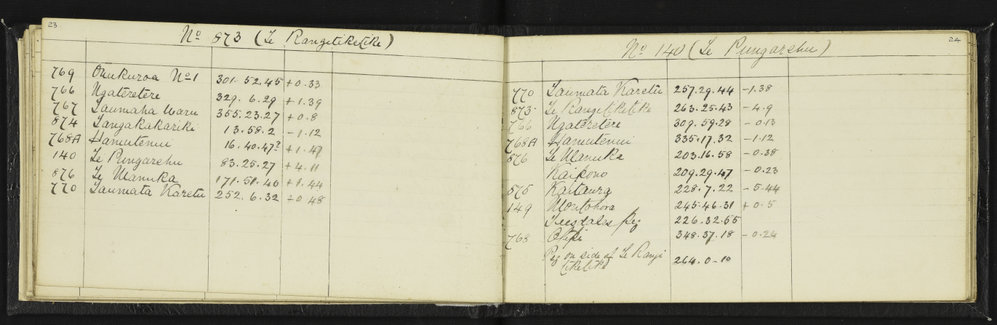 23
No 873 (Te Rangitikitiki)
769 Otukuroa No 1 301.52.45 +0.33
766 Ngateretere 329.6.29 +1.39
767 Taumaha Waru 355.23.27 +0.8
874 Tangakakariki 13.58.2 -1.12
768A Hamutenui 16.40.47? +1.47
140 Te Rungarehu 83.25.27 +4.11
876 Te Manuka 171.51.40 +1.44
770 Taumata Karetu 252.6.32 +0.48
24
No 140 (Te Rungarehu)
770 Taumata Karetu 257.29.44 -1.38
873 Te Rangitikitiki 263.25.43 -4.9
766 Ngateretere 309.59.28 -0.13
768A Hamutenui 335.17.32 -1.12
876 Te Manuka 203.16.58 -0.38
Kaikono 209.29.47 -0.23
575 Kaitaura 228.7.22 -0.44
149 245.46.31 +0.5
Peg 226.32.55
768 348.37.18 -0.24
Peg on side of Te Rangi
tikitiki 264.0.10